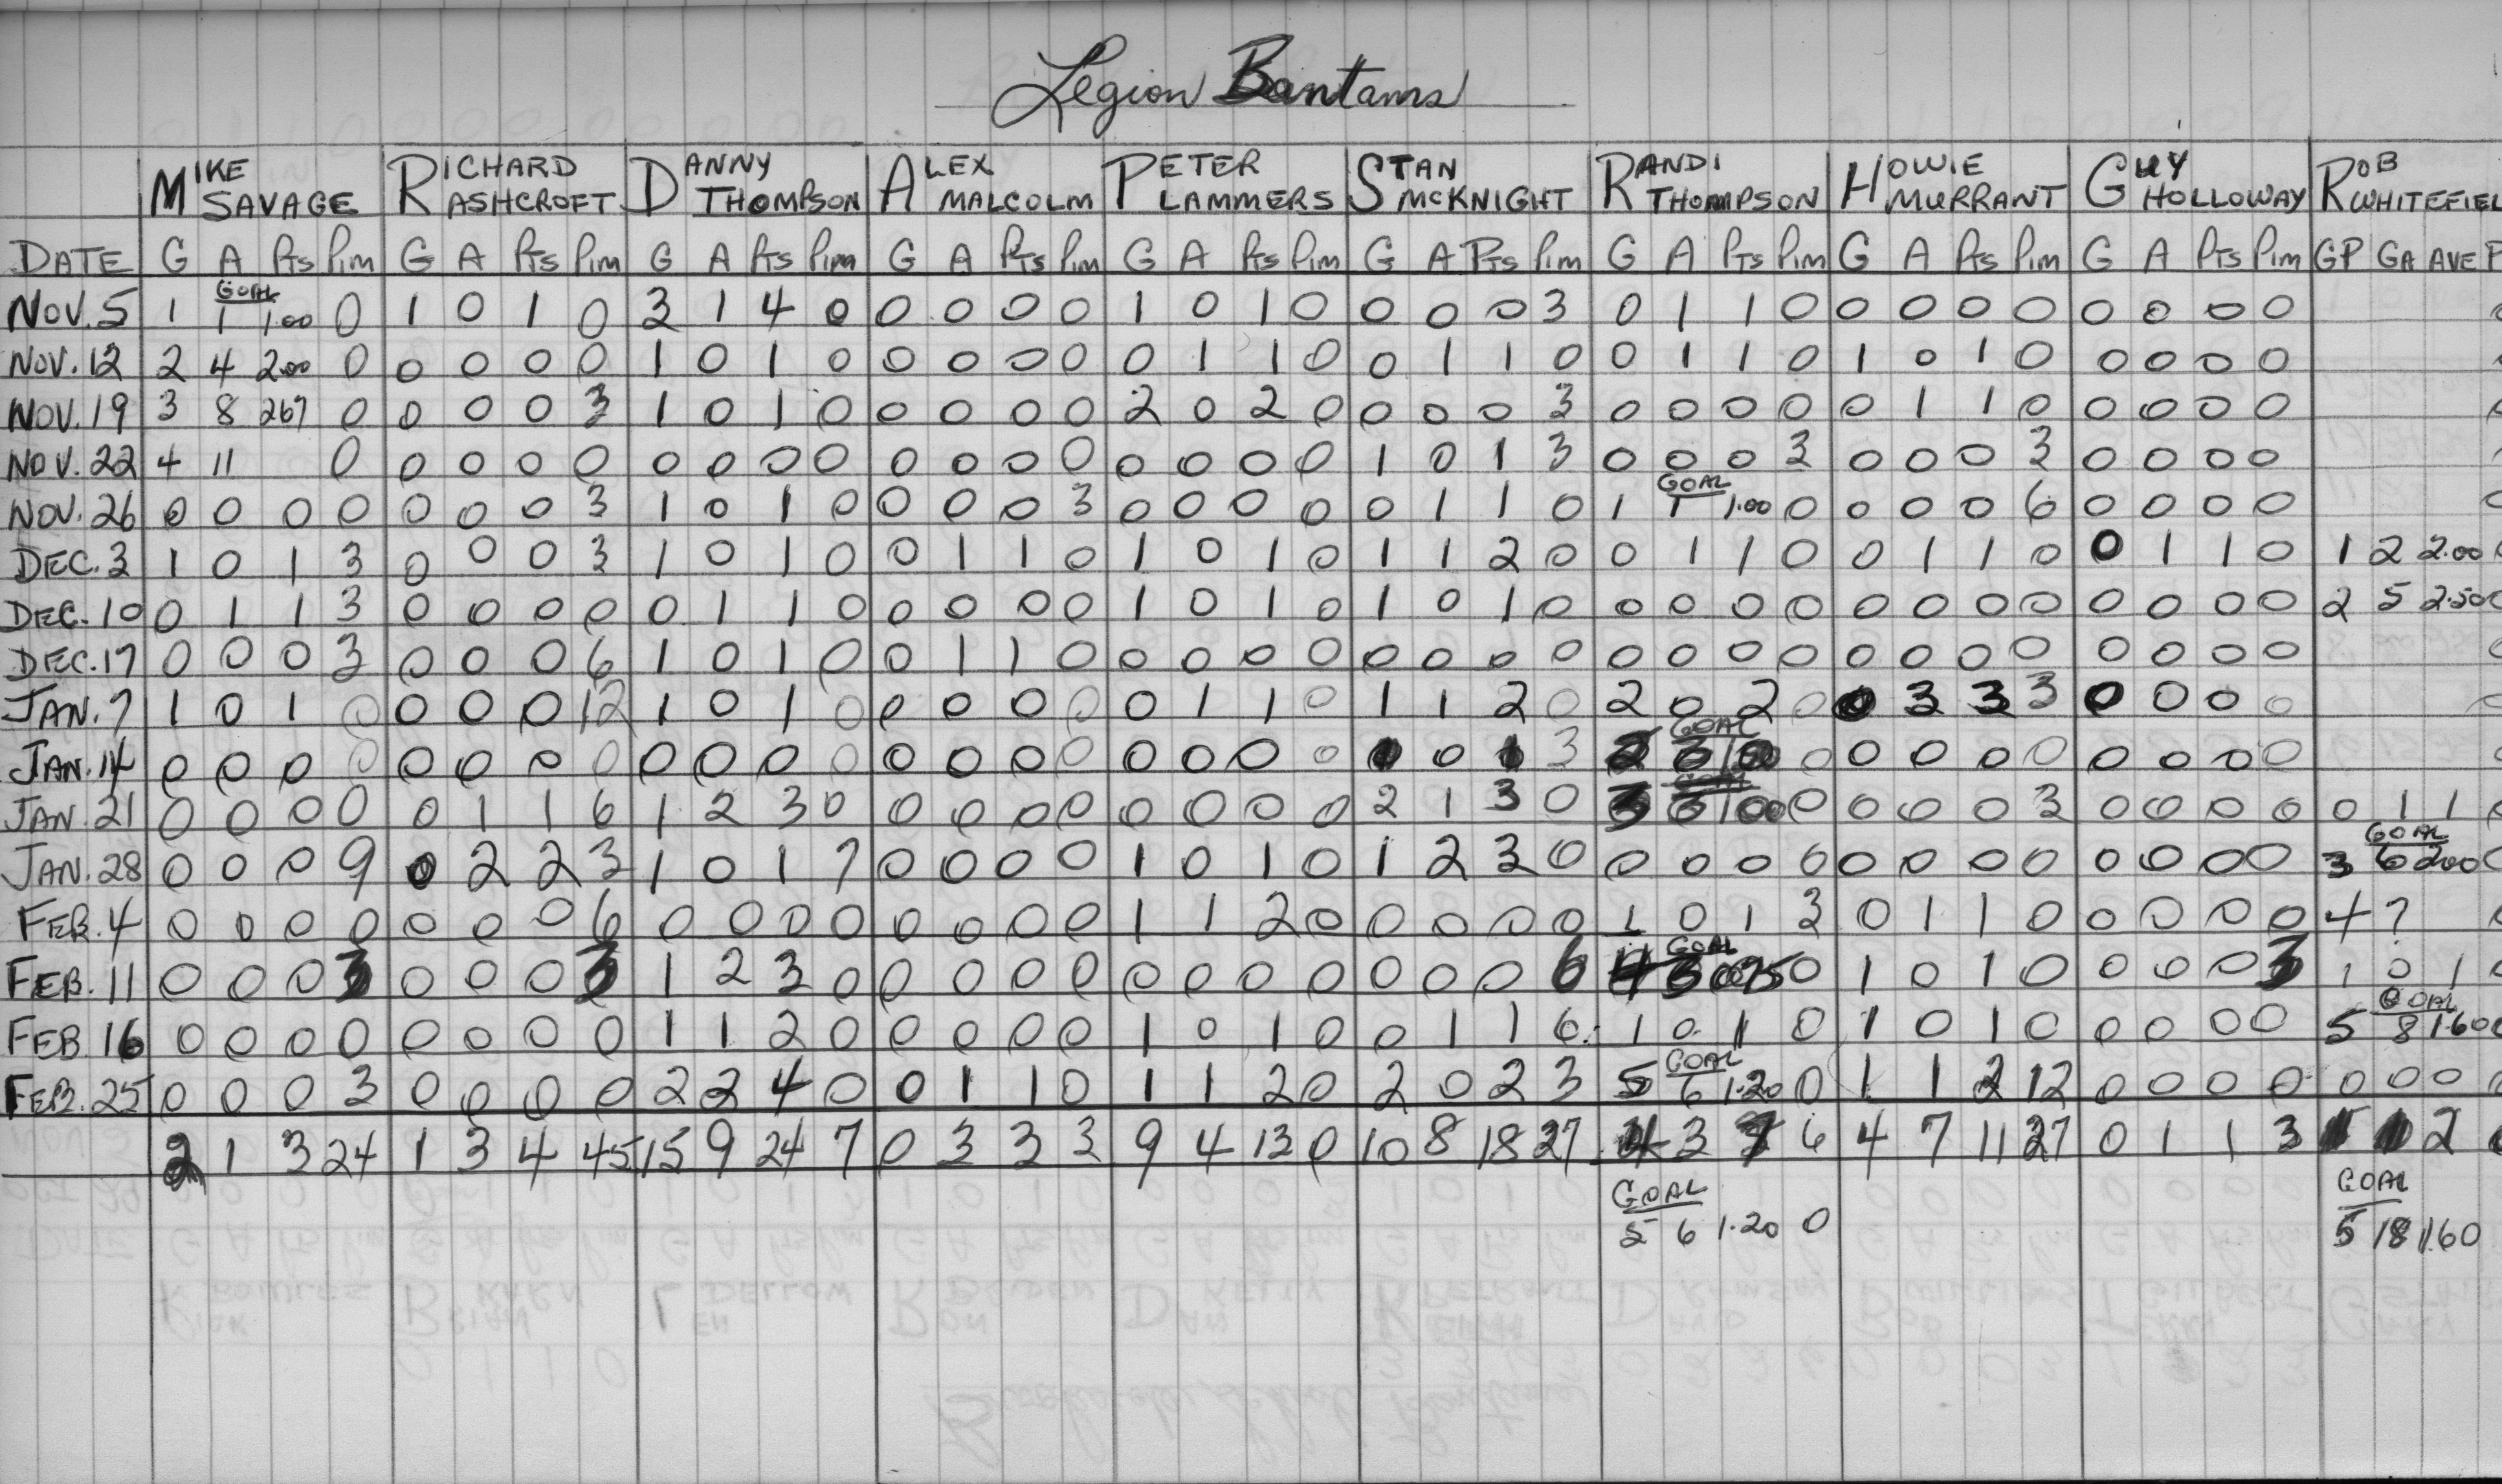 Legion Bantams
MIKE SAVAGE RICHARD ASHCROFT DANNY THOMPSON ALEX MALCOLM PETER LAMMERS STAN MCKNIGHT RANDI THOMPSON HOWIE MURRANT GUY HOLLOWAY ROB WHITEFIEL
DATE G A Pts Pim G A Pts Pim G A Pts Pim G A Pts Pim G A Pts Pim G A Pts Pim G A Pts Pim G A Pts Pim G A Pts Pim GP GA AVE P
GOAL
NOV. 5 1 1 1.00 0 1 0 1 0 3 1 4 0 0 0 0 0 1 0 1 0 0 0 0 3 0 1 1 0 0 0 0 0 0 0 0 0
NOV. 12 2 4 2.00 0 0 0 0 0 1 0 1 0 0 0 0 0 0 1 1 0 0 1 1 0 0 1 1 0 1 0 1 0 0 0 0 0
NOV. 19 3 8 267 0 0 0 0 3 1 0 1 0 0 0 0 0 2 0 2 0 0 0 0 3 0 0 0 0 0 1 1 0 0 0 0 0
NOV. 22 4 11 0 0 0 0 0 0 0 0 0 0 0 0 0 0 0 0 0 1 0 1 3 0 0 0 3 0 0 0 3 0 0 0 0
GOAL
NOV. 26 0 0 0 0 0 0 0 3 1 0 1 0 0 0 0 3 0 0 0 0 0 1 1 0 1 1 1.00 0 0 0 0 6 0 0 0 0
DEC. 3 1 0 1 3 0 0 0 3 1 0 1 0 0 1 1 0 1 0 1 0 1 1 2 0 0 1 1 0 0 1 1 0 0 1 1 0 1 2 2.00
DEC. 10 0 1 1 3 0 0 0 0 0 1 1 0 0 0 0 0 1 0 1 0 1 0 1 0 0 0 0 0 0 0 0 0 0 0 0 0 2 5 2.50
DEC. 17 0 0 0 3 0 0 0 6 1 0 1 0 0 1 1 0 0 0 0 0 0 0 0 0 0 0 0 0 0 0 0 0 0 0 0 0
JAN. 7 1 0 1 0 0 0 0 12 1 0 1 0 0 0 0 0 0 1 1 0 1 1 2 0 2 0 2 0 0 3 3 3 0 0 0 0
GOAL
JAN. 14 0 0 0 0 0 0 0 0 0 0 0 0 0 0 0 0 0 0 0 0 1 0 1 3 2 0 0 0 0 0 0 0 0 0
JAN. 21 0 0 0 0 0 1 1 6 1 2 3 0 0 0 0 0 0 0 0 0 2 1 3 0 3 0 0 0 0 3 0 0 0 0 0 1 1
GOAL
JAN. 28 0 0 0 9 0 2 2 3 1 0 1 7 0 0 0 0 1 0 1 0 1 2 3 0 0 0 0 0 0 0 0 0 0 0 0 0 3 6 200
FEB. 4 0 0 0 0 0 0 0 6 0 0 0 0 0 0 0 0 1 1 2 0 0 0 0 0 1 0 1 3 0 1 1 0 0 0 0 0 4 7
GOAL
FEB. 11 0 0 0 3 0 0 0 3 1 2 3 0 0 0 0 0 0 0 0 0 0 0 0 6 4 3 0 1 0 1 0 0 0 0 3 1 0 1
GOAL
FEB. 16 0 0 0 0 0 0 0 0 1 1 2 0 0 0 0 0 1 0 1 0 0 1 1 6 1 0 1 0 1 0 1 0 0 0 0 0 5 8 1.60
GOAL
FEB. 25 0 0 0 3 0 0 0 0 2 2 4 0 0 1 1 0 1 1 2 0 2 0 2 3 5 6 1.20 0 1 1 2 12 0 0 0 0 0 0 0
2 1 3 24 1 3 4 45 15 9 24 7 0 3 3 3 9 4 13 0 10 8 18 27 4 3 7 6 4 7 11 27 0 1 1 3 2
GOAL GOAL
5 6 1.20 0 5 18 1.60